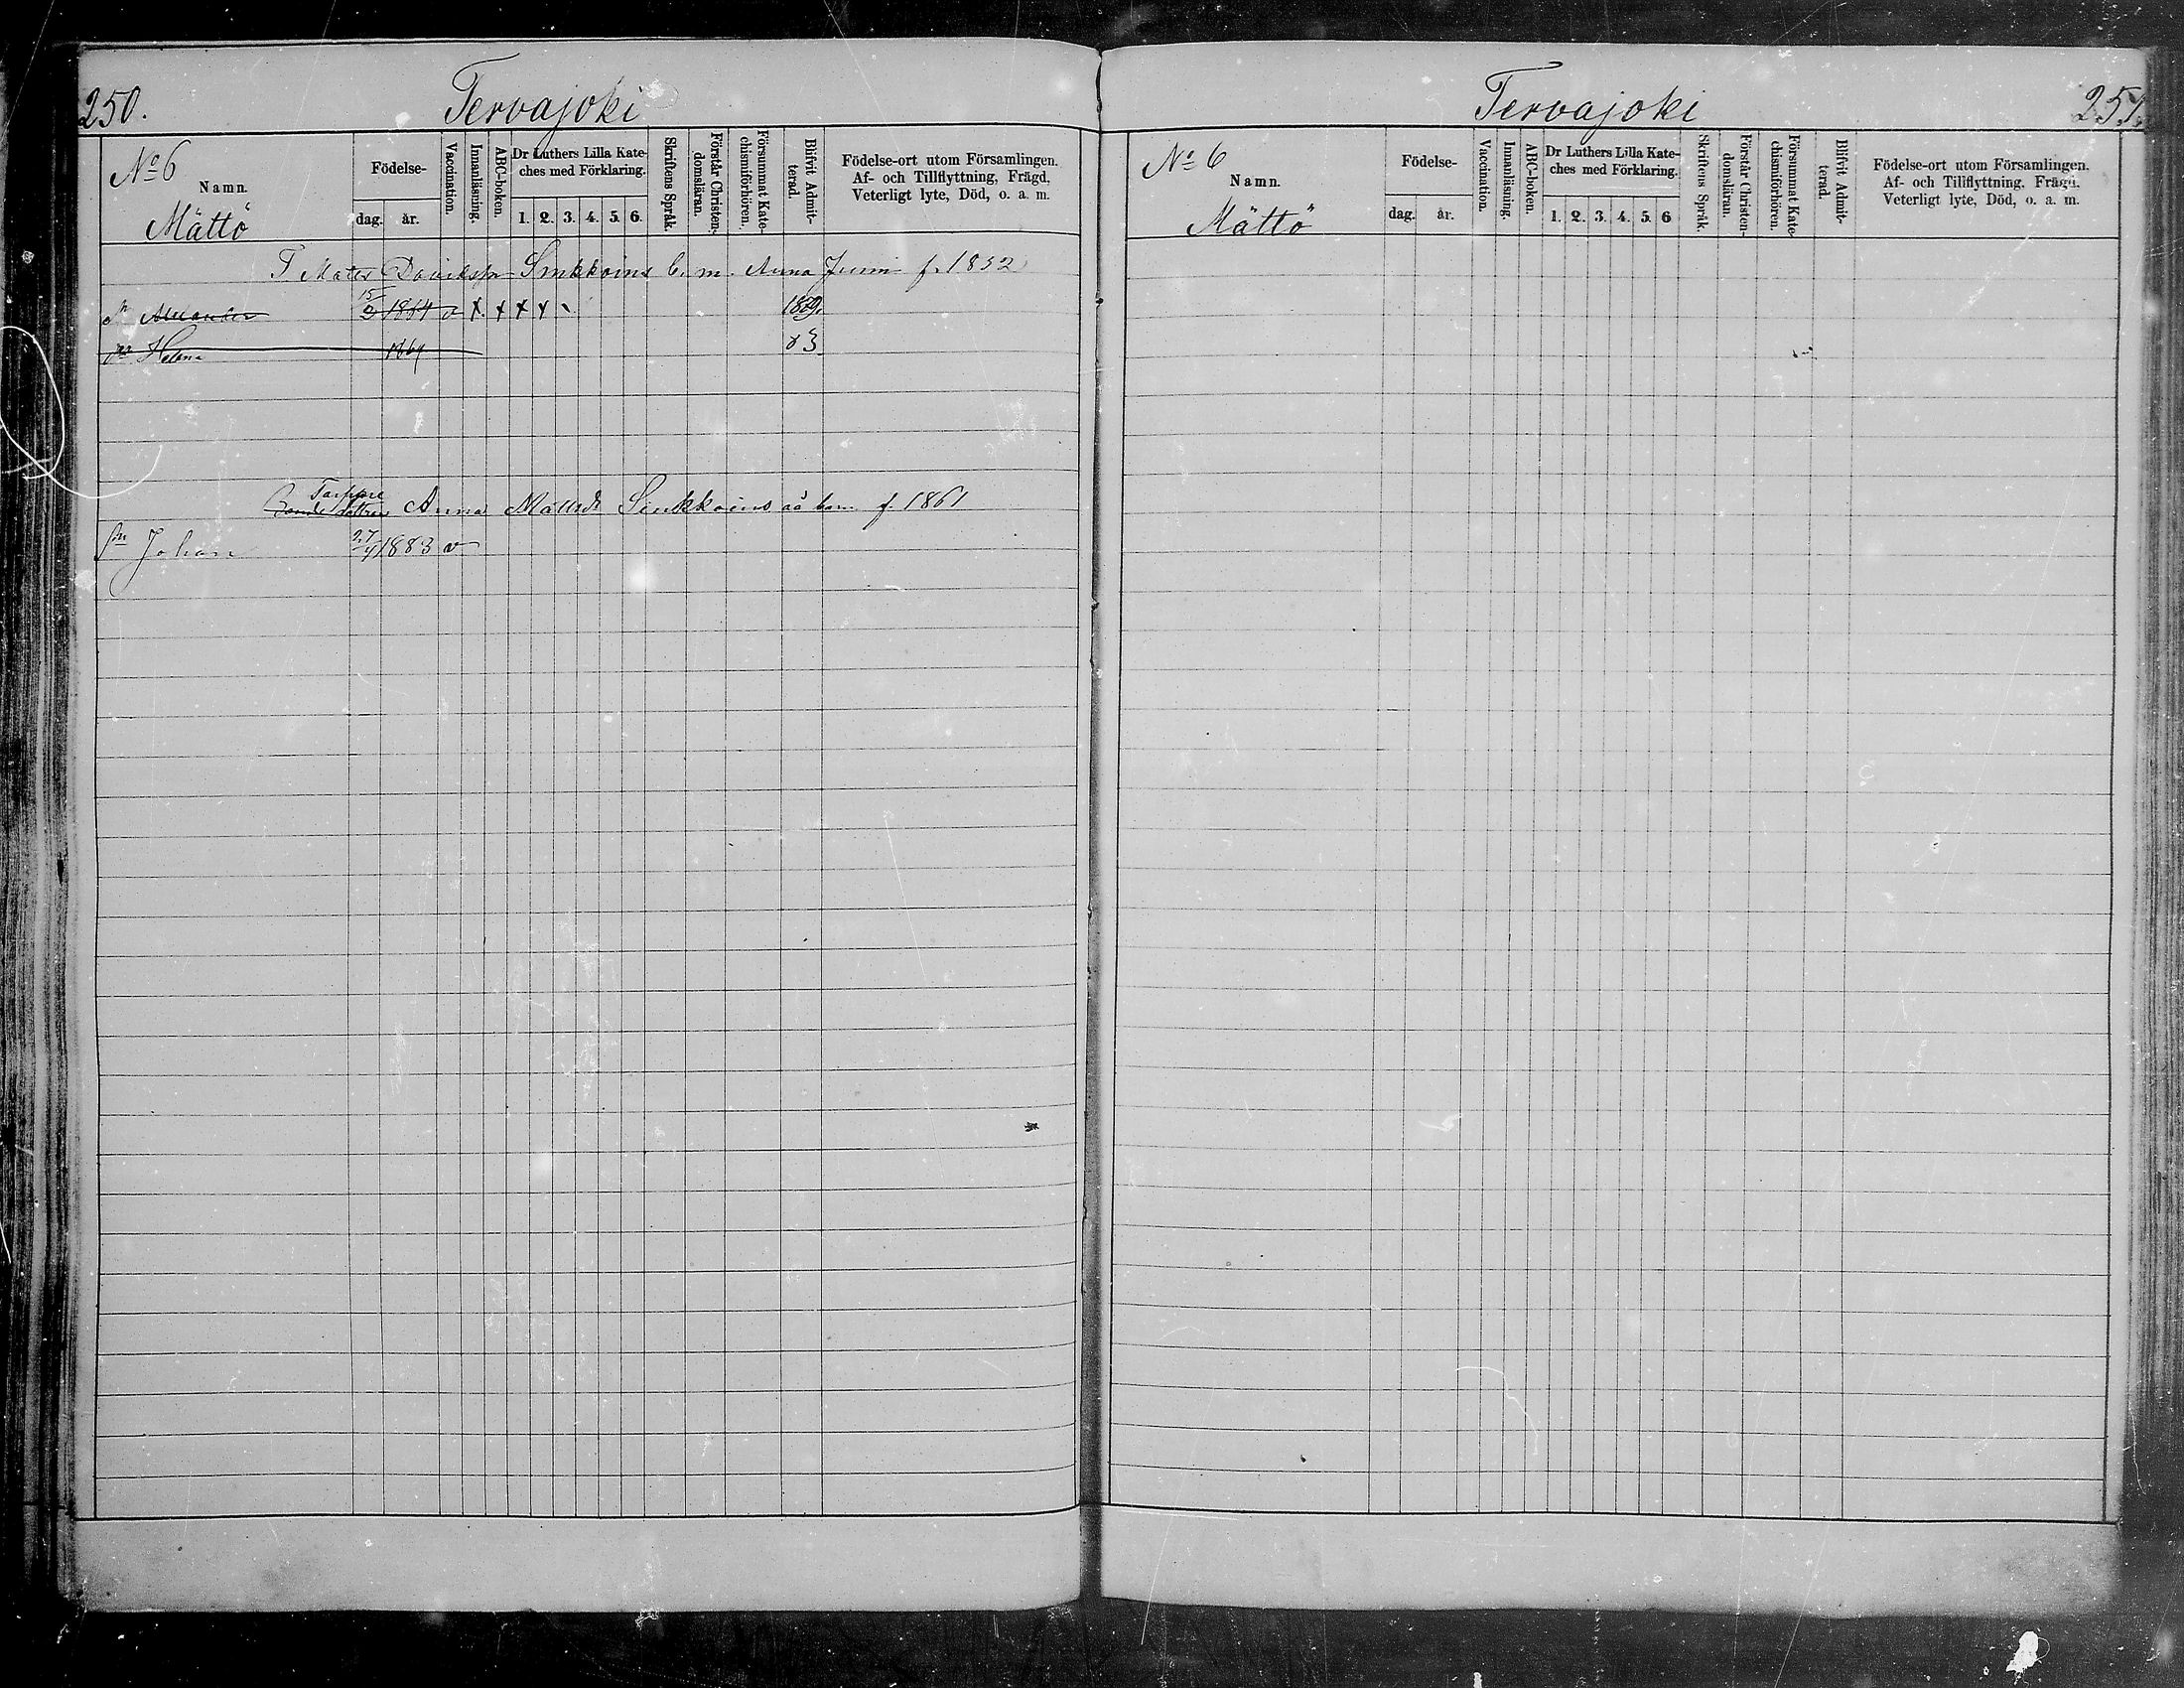 250.
Tervajoki
No 6
Namn.
Mättö
Födelse-
dag. år.
Vaccination.
Innanläsning.
ABC-boken.
Dr Luthers Lilla Kate-
ches med Förklaring.
1. 2. 3. 4. 5. 6.
Skriftens Språk.
Förstår Christen-
domsläran.
Försummat Kate-
chismiförhören.
Blifvit Admit-
terad.
Födelse-ort utom Församlingen.
Af- och Tillflyttning, Frägd,
Veterligt lyte, Död, o. a. m.
T. Matts Davidsson Sinkkoins b. m. Anna f. 1832
Alexander 15/2 1864 v x x x x
Helena 1869 83
Anna Mattsdr Sinkkoins oä barn f. 1861
sn Johan 27/4 1883 v
Tervajoki
251.
No 6
Namn.
Mättö
Födelse-
dag. år.
Vaccination.
Innanläsning.
ABC-boken.
Dr Luthers Lilla Kate-
ches med Förklaring.
1. 2. 3. 4. 5. 6
Skriftens Språk.
Förstår Christen-
domsläran.
Försummat Kate-
chismiförhören.
Blifvit Admit-
terad.
Födelse-ort utom Församlingen.
Af- och Tillflyttning. Frägd.
Veterligt lyte, Död, o. a. m.